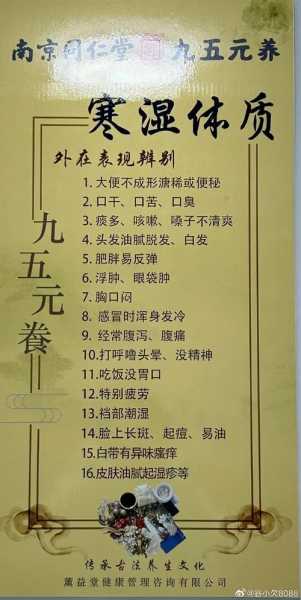 南京同仁堂 九五元养
寒湿体质
外在表现辨别
九五元養
1. 大便不成形溏稀或便秘
2. 口干、口苦、口臭
3. 痰多、咳嗽、嗓子不清爽
4. 头发油腻脱发、白发
5. 肥胖易反弹
6. 浮肿、眼袋肿
7. 胸口闷
8. 感冒时浑身发冷
9. 经常腹泻、腹痛
10. 打呼噜头晕、没精神
11. 吃饭没胃口
12. 特别疲劳
13. 裆部潮湿
14. 脸上长斑、起痘、易油
15. 白带有异味瘙痒
16. 皮肤油腻起湿疹等
传承古法养生文化
薰益堂健康管理咨询有限公司